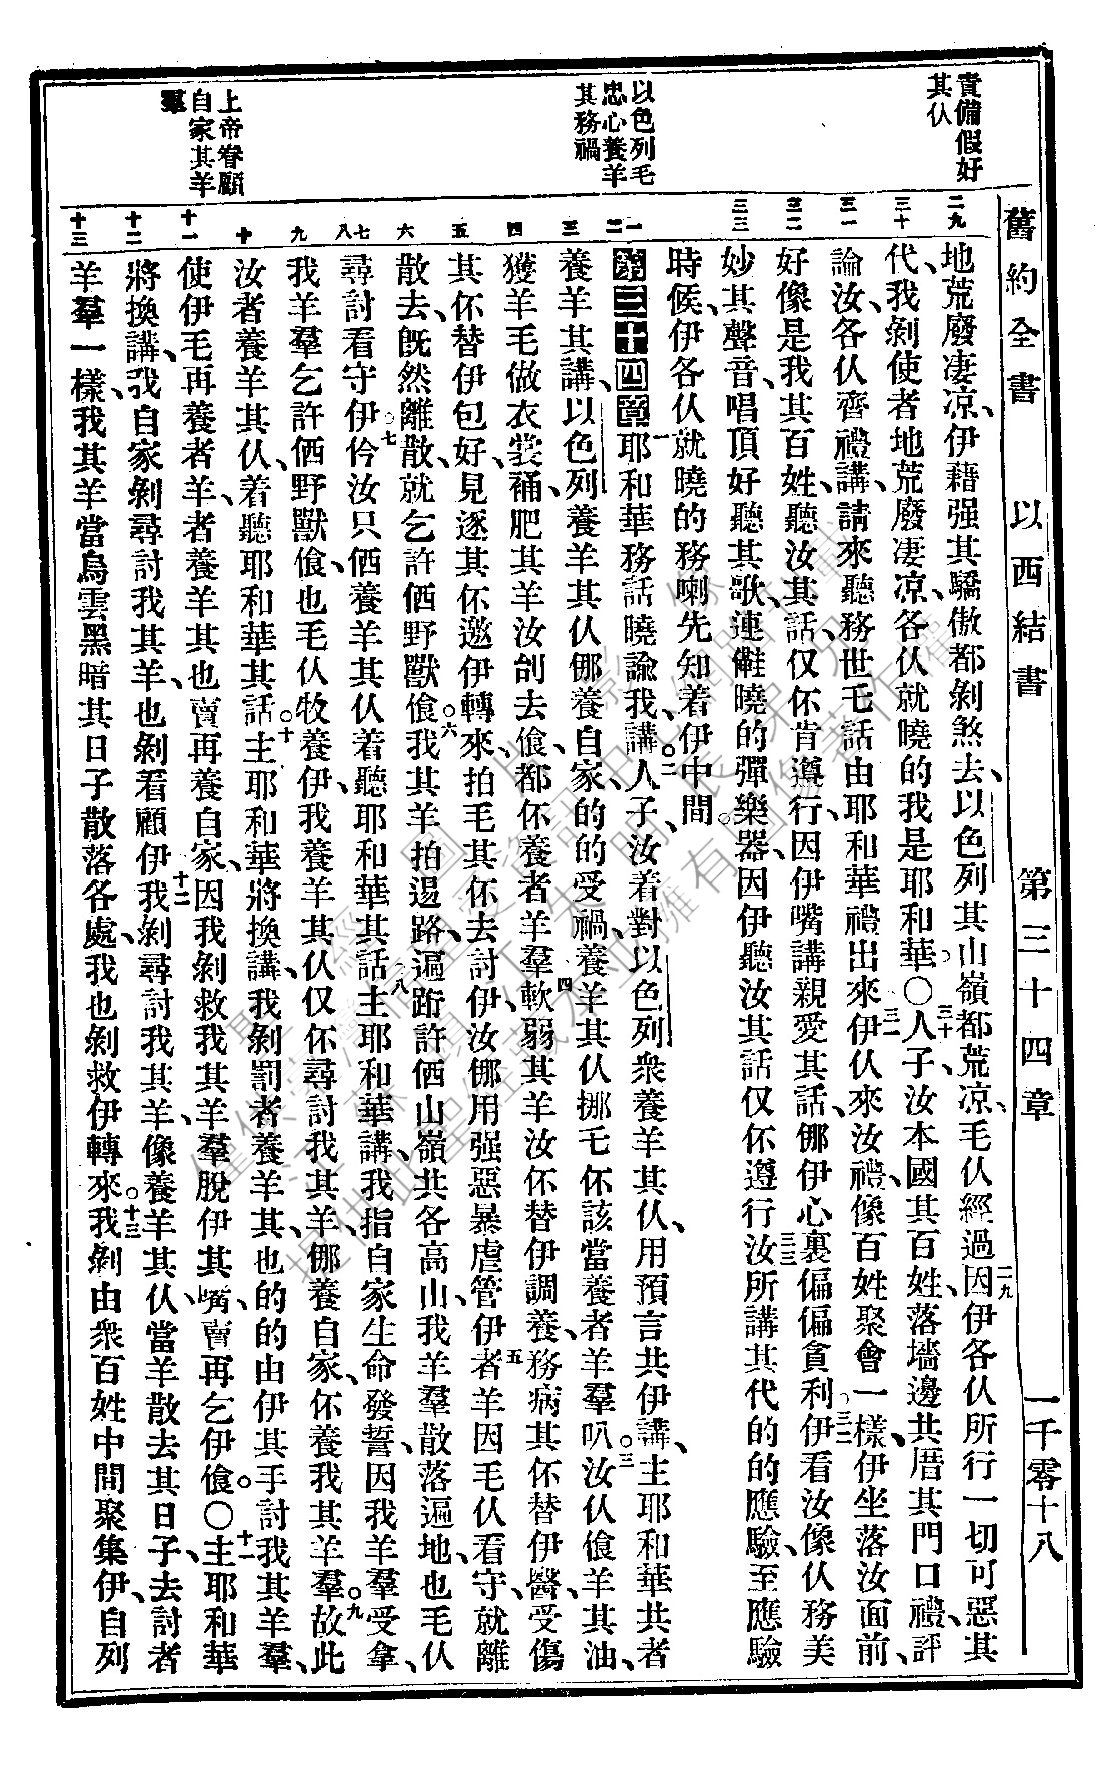 舊約全書　以西結書　第三十四章　一千零十八
責備假好
其仈
以色列毛
忠心養羊
其務禍
上帝眷顧
自家其羊
羣
二九
三十
三一
三二
三三
一
二
三
四
五
六
七
八
九
十
十一
十二
十三
地荒廢凄凉、伊藉强其驕傲都剝煞去、以色列其山嶺都荒凉、毛仈經過、二九因伊各仈所行一切可惡其
代、我剝使者地荒廢凄凉、各仈就曉的我是耶和華。○三十人子、汝本國其百姓、落墻邊共厝其門口禮、評
論汝、各仈齊禮講、請來聽務世乇話由耶和華禮出來、三一伊仈來汝禮、像百姓聚會一樣、伊坐落汝面前、
好像是我其百姓、聽汝其話、仅伓肯遵行、因伊嘴講親愛其話、㑚伊心裏偏偏貪利、三二伊看汝像仈務美
妙其聲音、唱頂好聽其歌、連儺曉的彈樂器、因伊聽汝其話、仅伓遵行、三三汝所講其代的的應驗、至應驗
時候、伊各仈就曉的務喇先知着伊中間。
第三十四章一耶和華務話曉諭我、講、二人子、汝着對以色列衆養羊其仈、用預言共伊講、主耶和華共者
養羊其講、以色列養羊其仈㑚養自家的的受禍、養羊其仈挪乇伓該當養者羊羣叭。三汝仈飡羊其油、
獲羊毛做衣裳、補肥其羊汝刣去飡、都伓養者羊羣、四軟弱其羊汝伓替伊調養、務病其伓替伊醫、受傷
其、伓替伊包好、見逐其伓邀伊轉來、拍毛其伓去討伊、汝㑚用强惡暴虐管伊、五者羊因毛仈看守、就離
散去、旣然離散、就乞許𠆧野獸飡。六我其羊拍逿路、遍跡許𠆧山嶺共各高山、我羊羣散落遍地、也毛仈
尋討看守伊。七伶汝只𠆧養羊其仈着聽耶和華其話、八主耶和華講、我指自家生命發誓、因我羊羣受拿、
我羊羣乞許𠆧野獸飡、也毛仈牧養伊、我養羊其仈仅伓尋討我其羊、㑚養自家、伓養我其羊羣。九故此
汝者養羊其仈、着聽耶和華其話。十主耶和華將換講、我剝罰者養羊其、也的的由伊其手討我其羊羣、
使伊毛再養者羊、者養羊其也賣再養自家、因我剝救我其羊羣脫伊其嘴、賣再乞伊飡。○十一主耶和華
將換講、我自家剝尋討我其羊、也剝看顧伊。十二我剝尋討我其羊、像養羊其仈當羊散去其日子、去討者
羊羣一樣、我其羊當烏雲黑暗其日子散落各處、我也剝救伊轉來。十三我剝由衆百姓中間聚集伊、自列